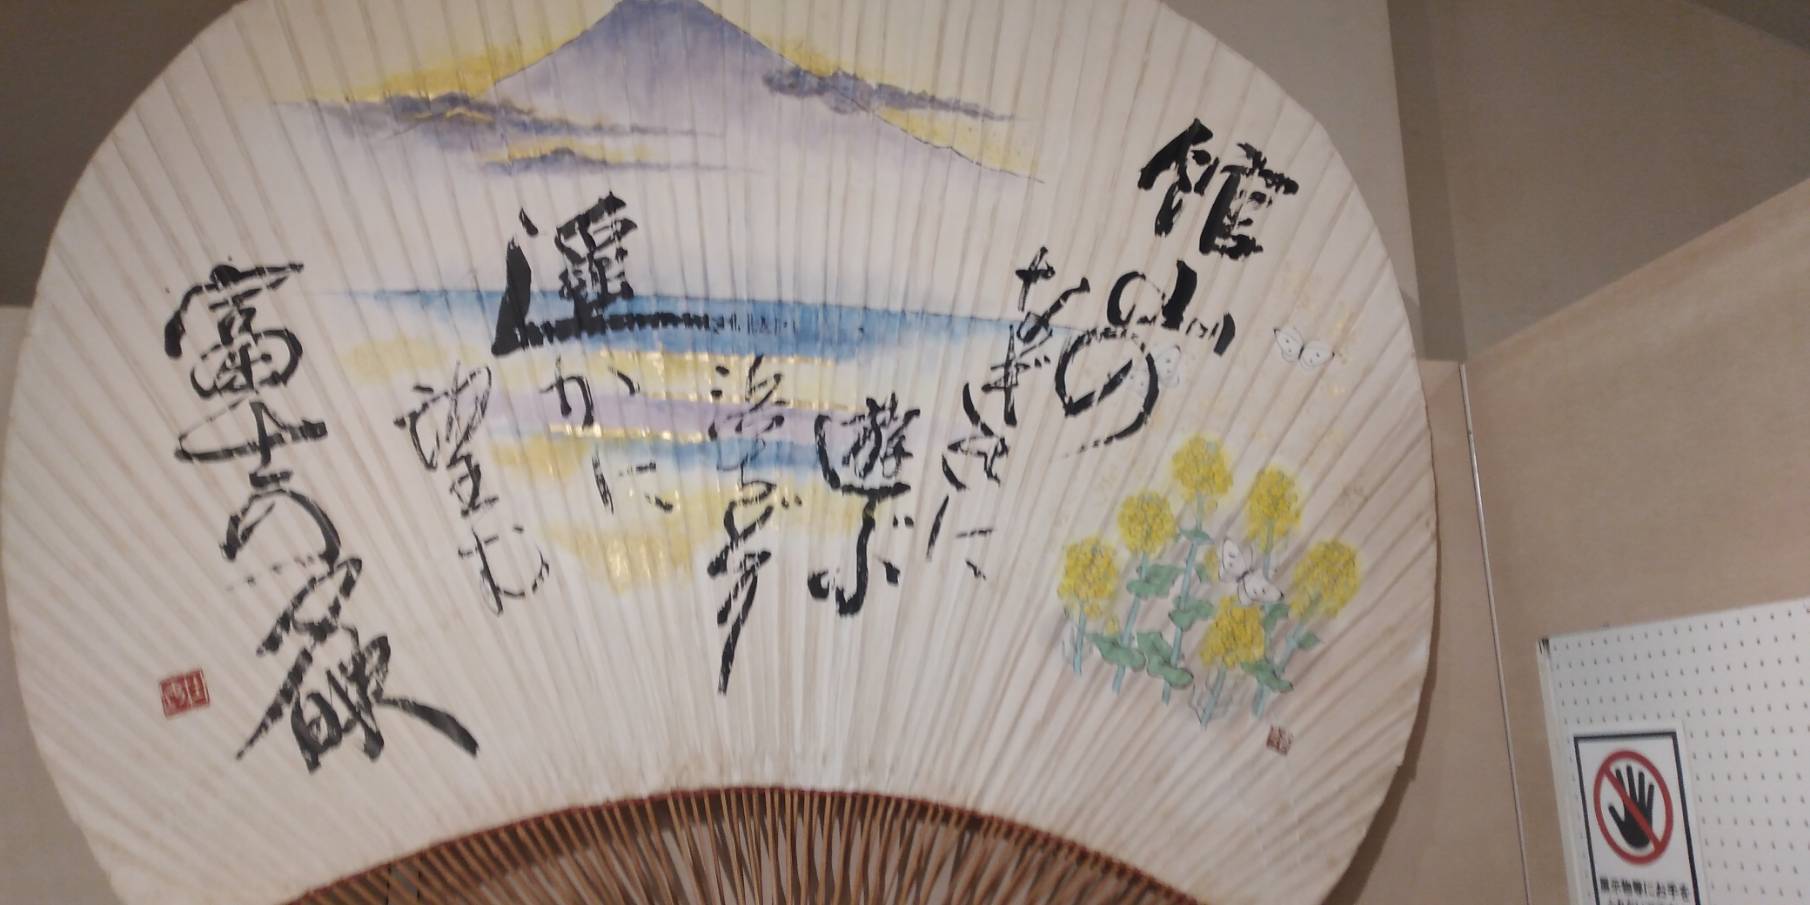 館山の
なぎさに
遊ぶ
遥かに
望む
富士の夕映
展示物等にお手を